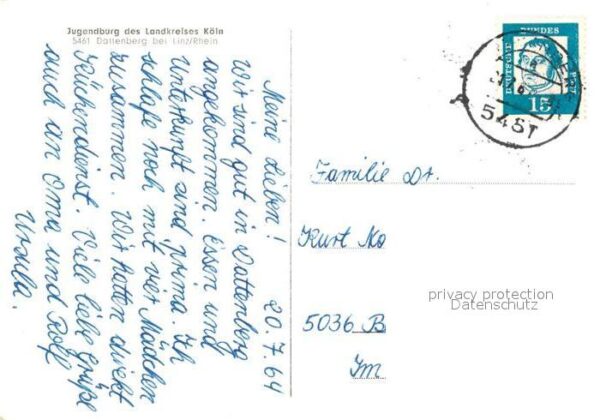 Jugendburg des Landkreises Köln
5461 Dattenberg bei Linz/Rhein
20.7.64
Meine Lieben!
Wir sind gut in Dattenberg
angekommen. Essen und
Unterkunft sind prima. Ich
schlafe noch mit vier Mädchen
zusammen. Wir hatten direkt
Küchendienst. Viele liebe Grüße
auch an Oma und Rolf
Ursula.
DEUTSCHE
BUNDES
POST
15
5451
Familie Dr.
Kurt No
5036 B
Im
privacy protection
Datenschutz